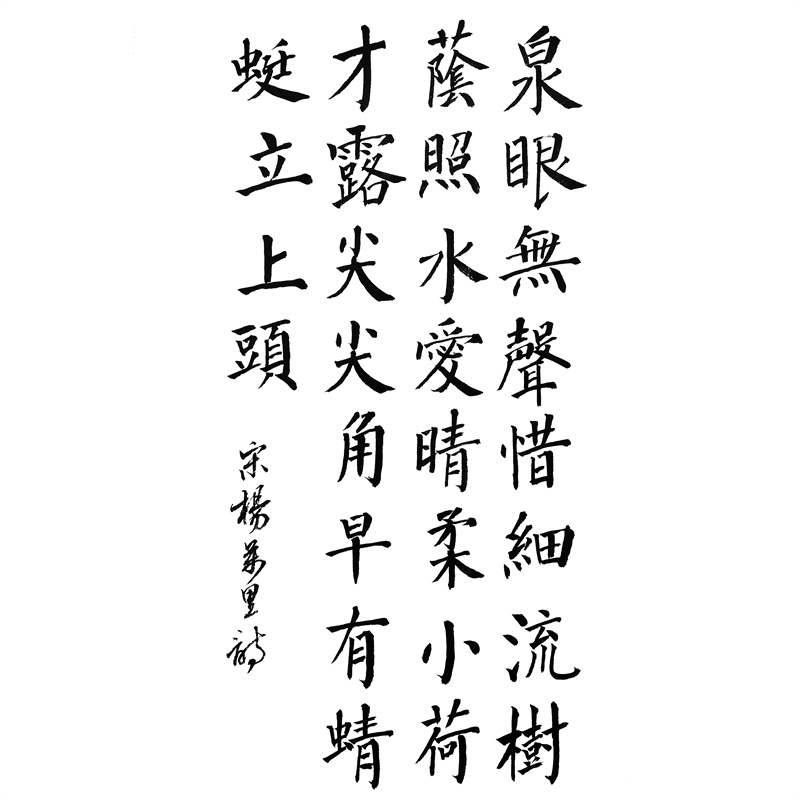 泉眼無聲惜細流樹
蔭照水愛晴柔小荷
才露尖尖角早有蜻
蜓立上頭
宋楊萬里詩